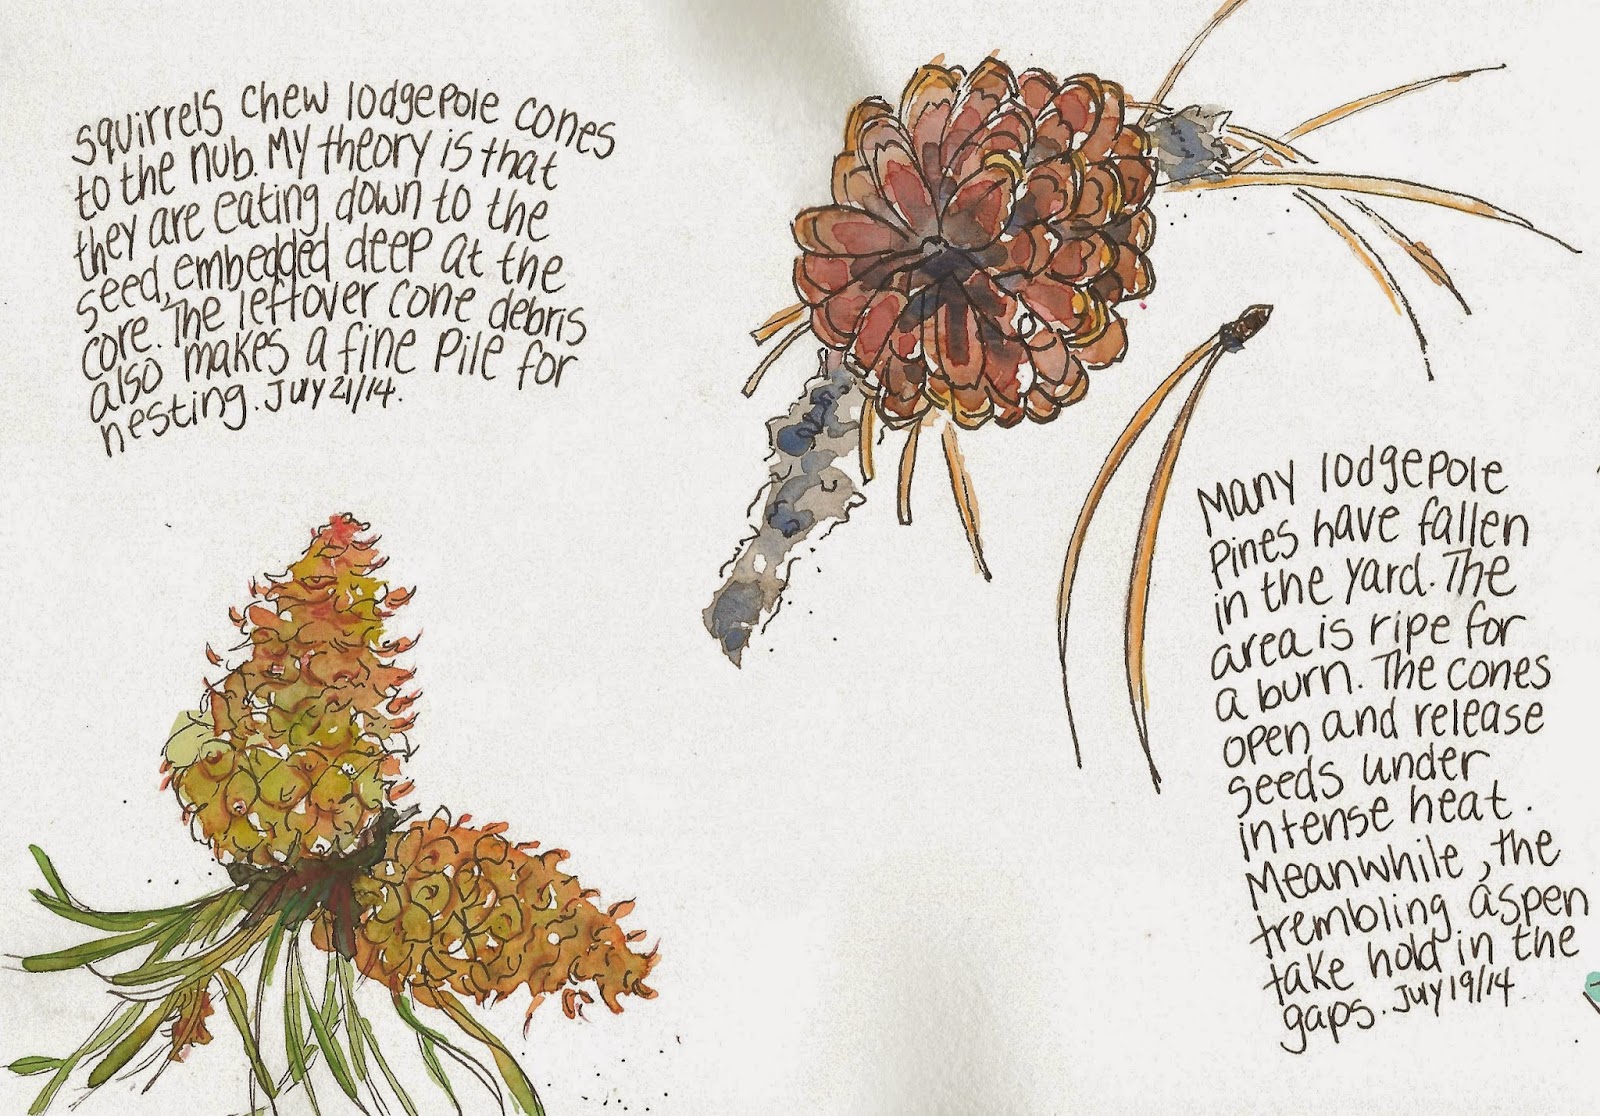 squirrels chew lodgepole cones
to the nub. My theory is that
they are eating down to the
seed, embedded deep at the
core. The leftover cone debris
also makes a fine pile for
nesting. July 21/14.
Many lodgepole
pines have fallen
in the yard. The
area is ripe for
a burn. The cones
open and release
seeds under
intense heat.
Meanwhile, the
trembling aspen
take hold in the
gaps. July 19/14